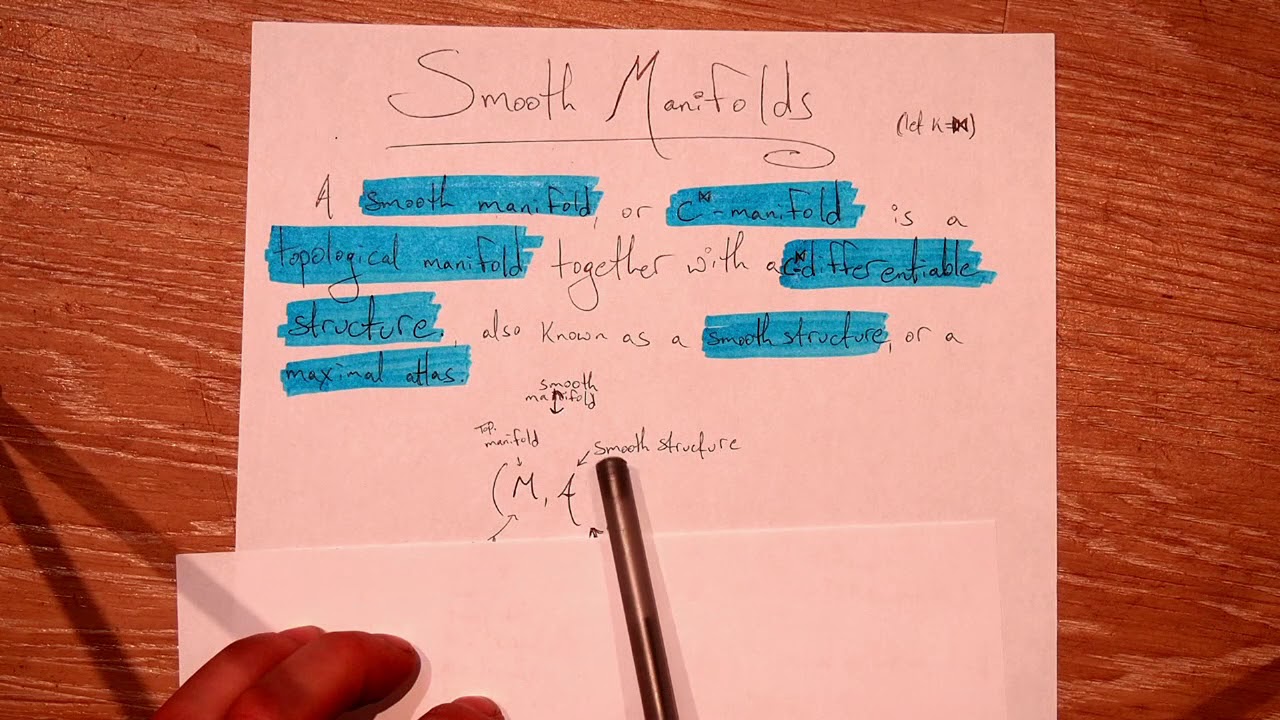 Smooth Manifolds
(let k=∞)
A smooth manifold, or C^∞-manifold is a
topological manifold together with a C^∞ differentiable
structure, also known as a smooth structure, or a
maximal atlas.
smooth
manifold
Top.
manifold
smooth structure
(M, A